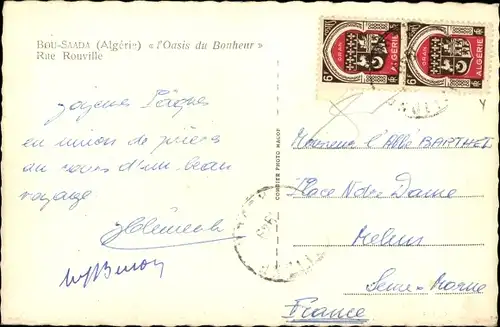 BOU-SAADA (Algérie) « l'Oasis du Bonheur »
Rue Rouville
Joyeuses Pâques
en union de prières
au cours d'un beau
voyage
COMBIER PHOTO MALOT
6F
ORAN
ALGÉRIE
6F
ORAN
ALGÉRIE
Monsieur l'Abbé BARTHEL
Place Notre Dame
Melun
Seine-Marne
France